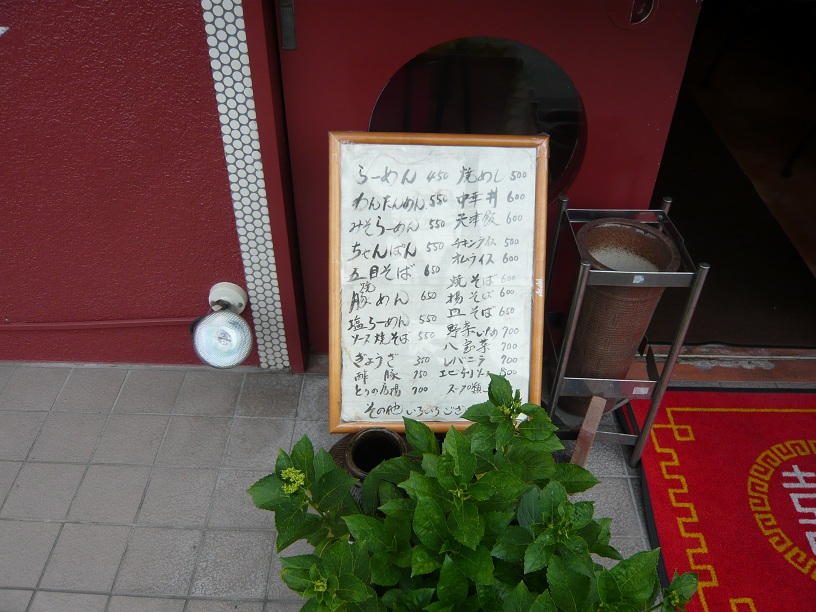 らーめん 450
わんたんめん 550
みそらーめん 550
ちゃんぽん 550
五目そば 650
焼豚めん 650
塩らーめん 550
ソース焼そば 550
ぎょうざ 350
酢豚 750
とりの唐揚 700
焼めし 500
中華丼 600
天津飯 600
チキンライス 500
オムライス 600
焼そば 600
揚そば 600
皿そば 650
野菜いため 700
八宝菜 700
レバニラ 700
エビチリソース 800
スープ類
その他いろいろござ